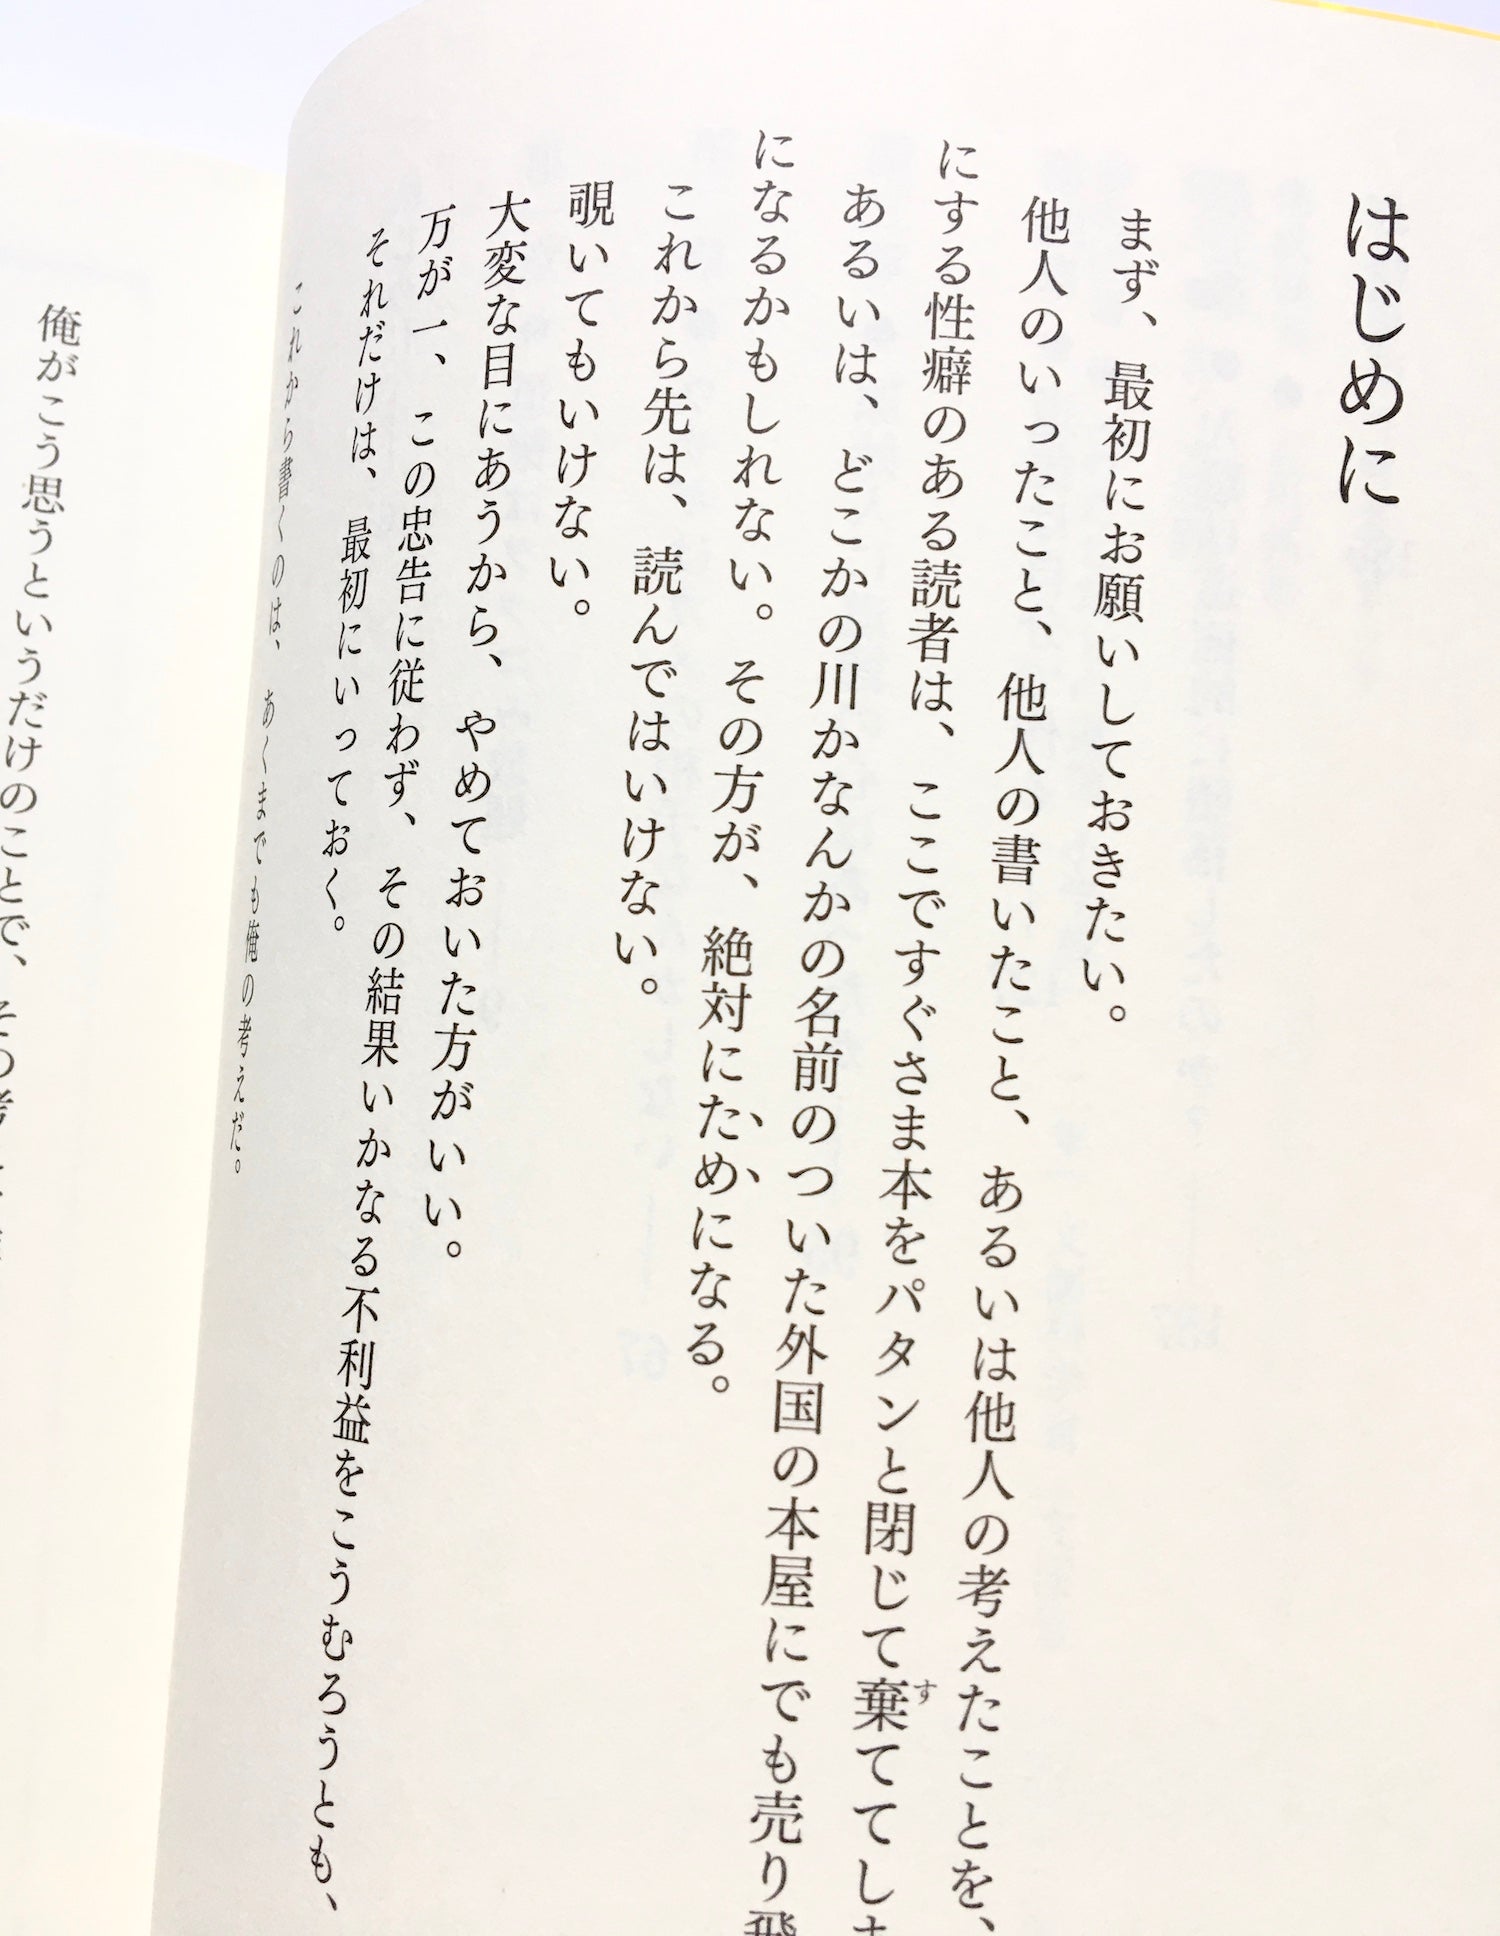 はじめに
まず、最初にお願いしておきたい。
他人のいったこと、他人の書いたこと、あるいは他人の考えたことを、
にする性癖のある読者は、ここですぐさま本をパタンと閉じて棄ててし
す
あるいは、どこかの川かなんかの名前のついた外国の本屋にでも売り飛
になるかもしれない。その方が、絶対にためになる。
これから先は、読んではいけない。
覗いてもいけない。
大変な目にあうから、やめておいた方がいい。
万が一、この忠告に従わず、その結果いかなる不利益をこうむろうとも、
それだけは、最初にいっておく。
これから書くのは、あくまでも俺の考えだ。
俺がこう思うというだけのことで、